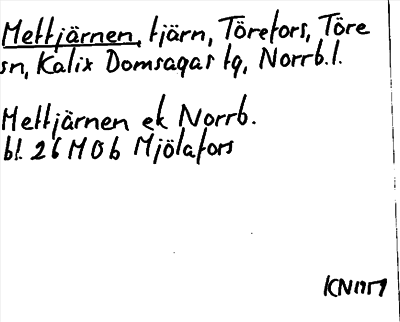 Mettjärnen, tjärn, Törefors, Töre
sn, Kalix Domsagas tg, Norrb.l.
Mettjärnen ek Norrb.
bl. 26 M 0b Mjölafors